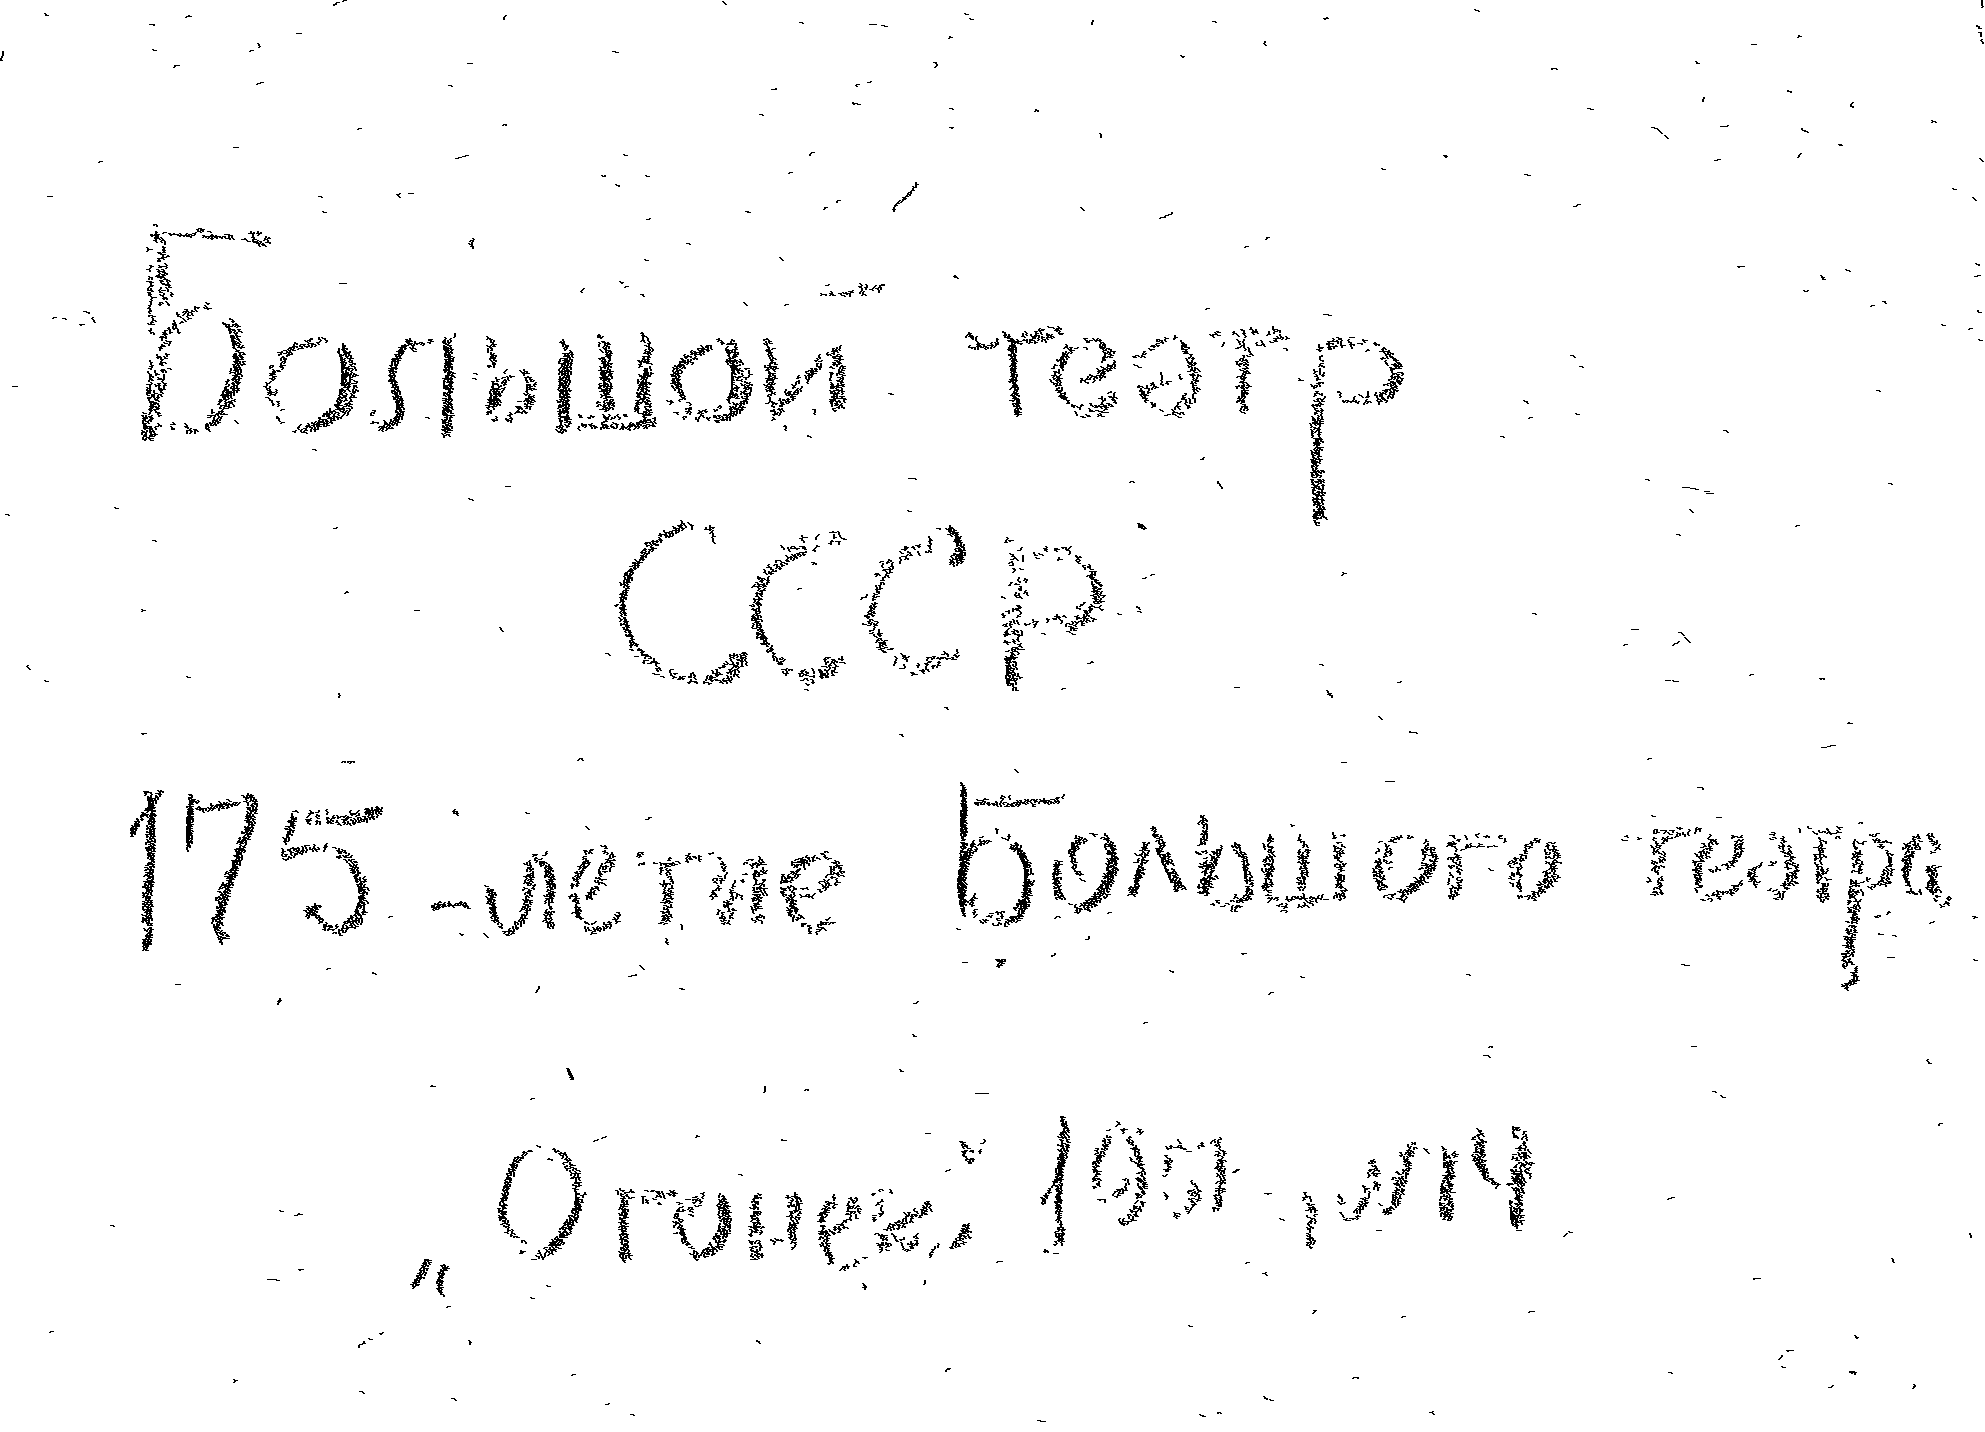 Большой театр
СССР
175-летие Большого театра
„Огонек"